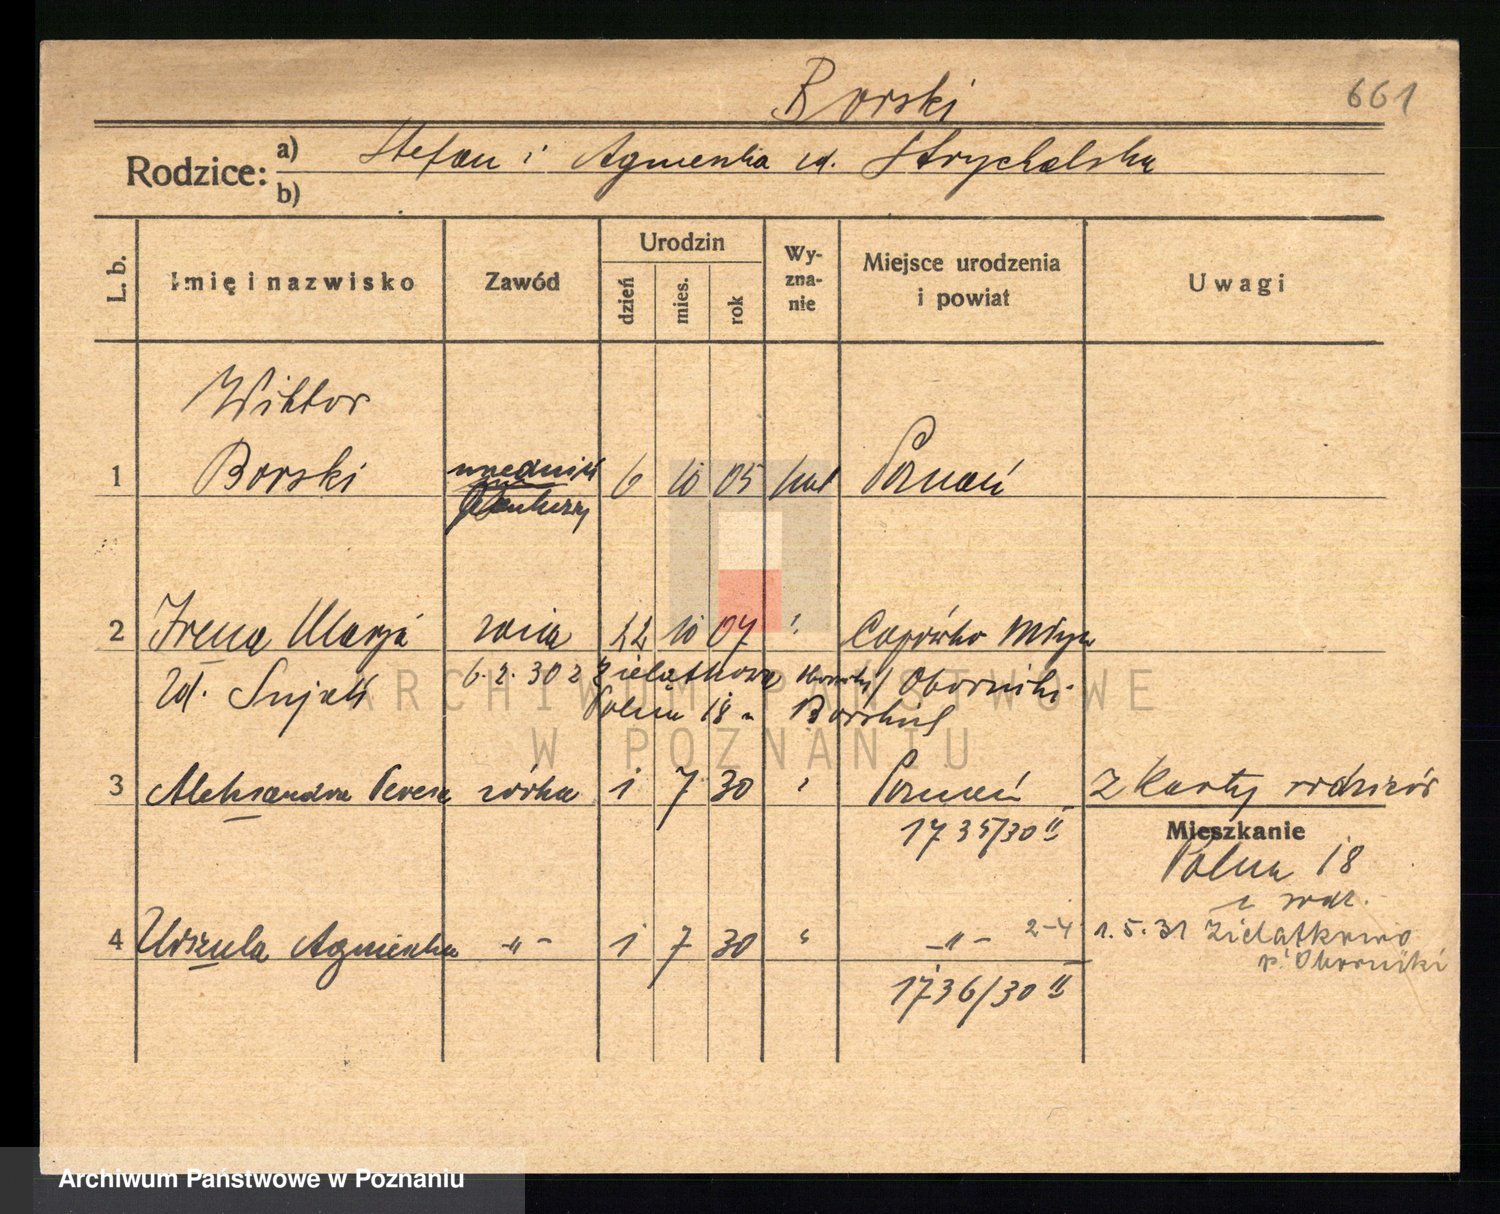 661
Borski
Rodzice: a) Stefan i Agnieszka zd. Strychalska
b)
L. b. Imię i nazwisko Zawód Urodzin dzień mies. rok Wy-zna-nie Miejsce urodzenia i powiat Uwagi
Wiktor
1 Borski urzędnik 6 10 05 kat Poznań
2 Irena Marja żona 22 10 07 " 
zd. 6.2.30 z Zielątkowa Oborniki
Polna 18 u Borskich
3 Aleksandra Teresa córka 1 7 30 " Poznań Z karty rodziców
1735/30 II
Mieszkanie
Polna 18
z rodz.
4 Urszula Agnieszka -"- 1 7 30 " -"- 2-4 1.5.31 Zielątkowo
p. Oborniki
1736/30 II
ARCHIWUM PAŃSTWOWE
W POZNANIU
Archiwum Państwowe w Poznaniu